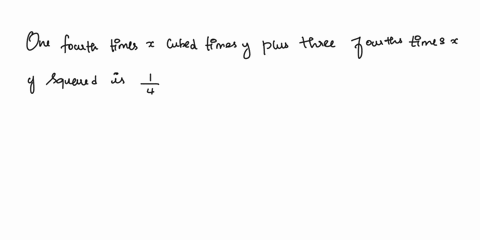 One fourth times x cubed times y plus three fourths times x
y squared is 1/4